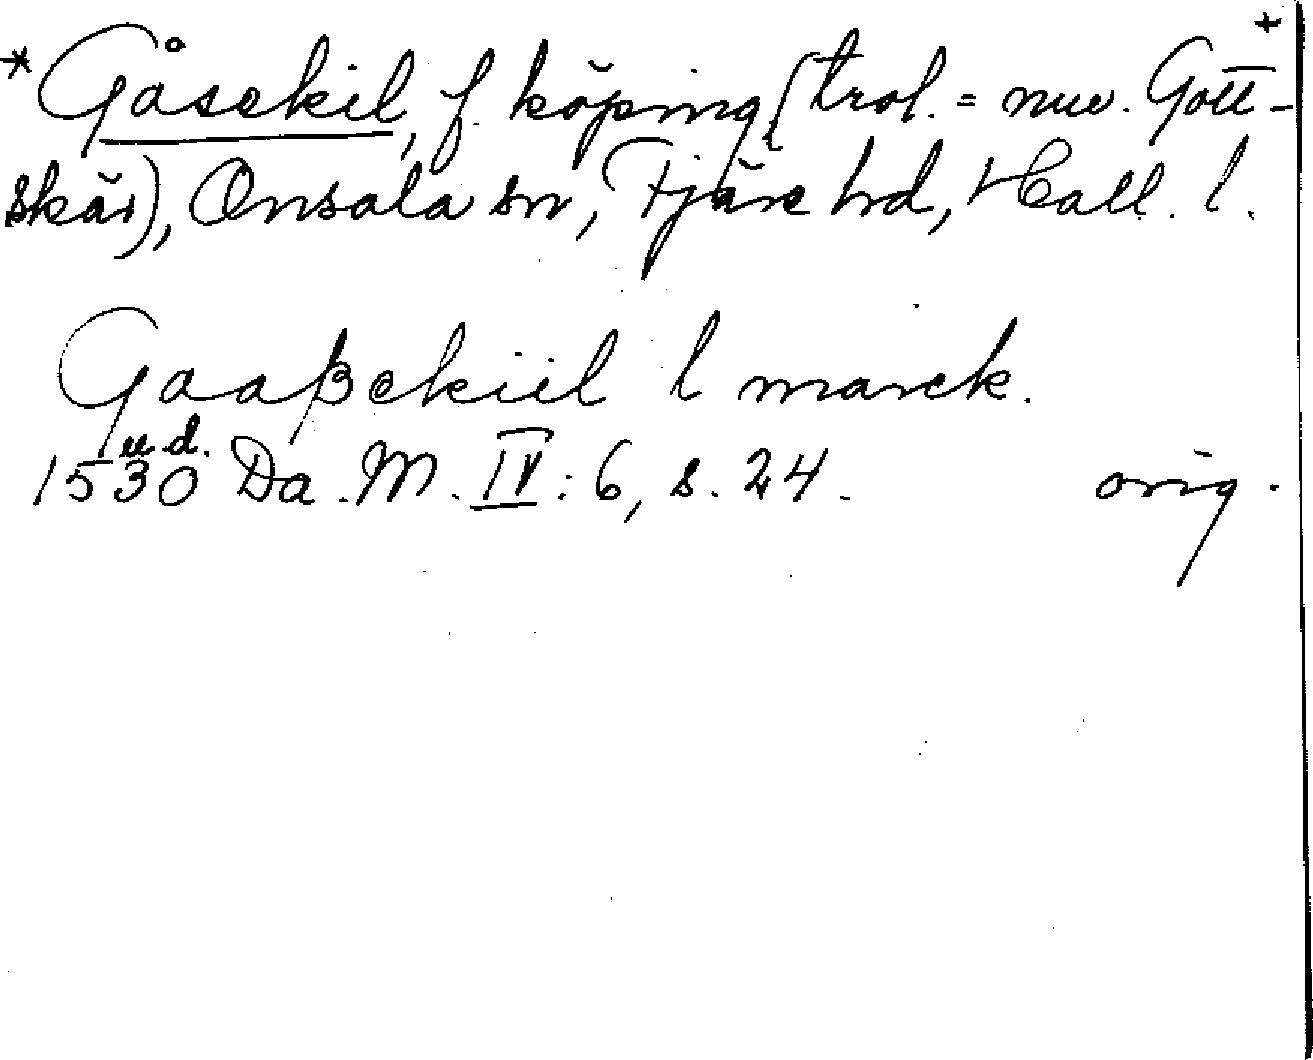 * Gåsekil, f. köping (trol. = nuv. Gott- +
skär), Onsala sn, Fjäre hd, Hall. l.
Gaaßekiil l marck.
u.d.
1530 Da. M. IV: 6, s. 24. orig.